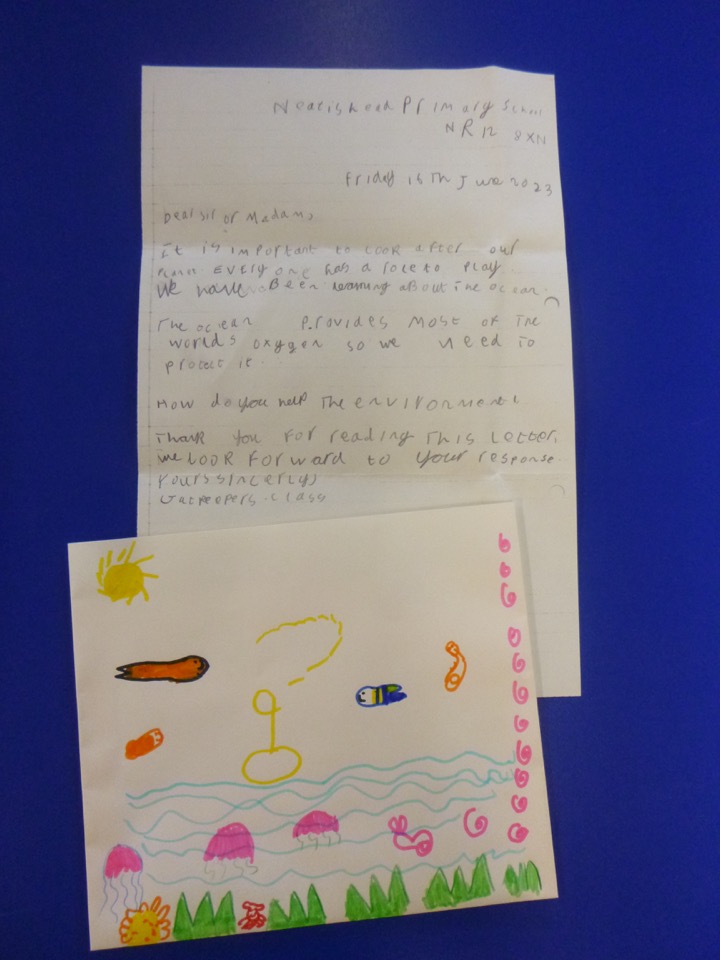 Neatishead Primary School
NR12 8XN
Friday 16Th June 2023
Dear sir or Madam,
It is important to Look after our
EVery one has a role to Play
We have Been learning about The ocean.
The ocean Provides most of The
worlds oxygen so we need to
protect it.
How do you help The environment
Thank you For reading This Letter,
we LOOK Forward to your response
Yours sincerly,
class